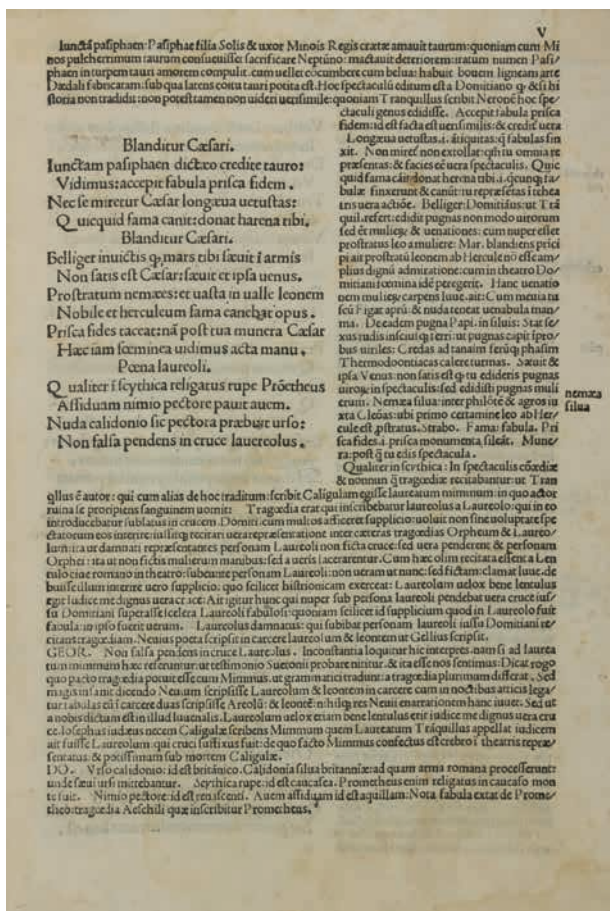 V
Iunctā pasiphaen: Pasiphae filia Solis & uxor Minois Regis crætæ amauit taurum: quoniam cum Mi
nos pulcherrimum taurum consueuisset sacrificare Neptūno: mactauit deteriorem: iratum numen Pasi/
phaen in turpem tauri amorem compulit. cum uellet cōcumbere cum belua: habuit bouem ligneam arte
Dædali fabricatam: sub qua latens coitu tauri potita est. Hoc spectaculū editum est a Domitiano
storia non tradidit: non potest tamen non uideri uerisimile: quoniam Tranquillus scribit Neronē hoc spe/
Blanditur Cæsari.
Iunctam pasiphaen dictæo credite tauro:
Vidimus: accepit fabula prisca fidem.
Nec se miretur Cæsar longæua uetustas:
Quicquid fama canit: donat harena tibi.
Blanditur Cæsari.
Belliger inuictis ꝙ mars tibi sæuit ī armis
Non satis est Cæsar: sæuit et ipsa uenus.
Prostratum nemæes: et uasta in ualle leonem
Nobile et herculeum fama canebat opus.
Prisca fides taceat: nā post tua munera Cæsar
Hæc iam fœminea uidimus acta manu.
Pœna laureoli.
Qualiter ī scythica religatus rupe Prōetheus
Assiduam nimio pectore pauit auem.
Nuda calidonio sic pectora præbuit urso:
Non falsa pendens in cruce lauereolus.
ctaculi genus edidisse. Accepit fabula prisca
fidem: id est facta est uerisimilis: & credit uera
Longæua uetustas. i. ātiquitas: q̄ fabulas fin
xit. Non miret non extollat: qm̄ tu omnia re
præsentas: & facies eē uera spectaculis. Quic
quid fama cāit: donat herena tibi. i. qcunqȝ fa/
bulæ finxerunt & canūt: tu repræsētas ī thea
tris uera actiōe. Belliger: Domitiāus: ut Trā
quil. refert: edidit pugnas non modo uirorum
sed et mulierū & uenationes: cum nuper esset
prostratus leo a muliere: Mar. blandiens prici
pi ait prostratū leonem ab Hercule nō esse am/
plius dignū admiratione: cum in theatro Do/
mitiani fœmina idē peregerit. Hanc uenatio
nem mulierū carpens Iuue. ait: Cum meuia tu
scū Figat aprū & nuda teneat uenabula mam/
ma. De eadem pugna Papi. in siluis: Stat se/
xus rudis insciusqȝ ferri: ut pugnas capit ipro/
bus uiriles: Credas ad tanaim ferūqȝ phasim
Thermodoontiacas calere turmas. Sæuit &
ipsa Venus: non satis est ꝙ tu edideris pugnas
uirorū in spectaculis: sed edidisti pugnas muli
erum. Nemæa silua: inter philōtē & agros iu
xta Cleōas: ubi primo certamine leo ab Her/
cule est prostratus. Strabo. Fama: fabula. Pri
sca fides. i. prisca monumenta sileāt. Mune/
ra: post q̄ tu edis spectacula.
nemæa
silua
Qualiter in scythica: In spectaculis cōœdiæ
& nonnunq̄ tragœdiæ recitabantur: ut Tran
qllus ē autor: qui cum alias de hoc traditum: scribit Caligulam egisse laureatum mimmum: in quo actor
ruina se proripiens sanguinem uomit: Tragœdia erat qui inscribebatur laureolus a Laureolo: qui in eo
introducebatur sublatus in crucem. Domiti. cum multos afficeret supplicio: uoluit non sine uoluptate spe
ctatorum eos interire: iussitqȝ recitari uera repræsentatione inter cæteras tragœdias Orpheum & Laureo/
lum: ita ut damnati repræsentantes personam Laureoli non ficta cruce: sed uera penderent & personam
Orphei: ita ut non fictis mulierum manibus: sed a ueris lacerarentur. Cum hæc olim recitata essent a Len
tulo ciue romano in theatro: subeunte personam Laureoli: non ueram ut nunc: sed fictam: clamat Iuue. de
buisse illum interire uero supplicio: quo scilicet histrionicam exerceat: Laureolum uelox bene lentulus
egit Iudice me dignus uera cruce: Ait igitur hunc qui nuper sub persona laureoli pendebat uera cruce ius/
su Domitiani superasse scelera Laureoli fabulosi: quoniam scilicet id supplicium quod in Laureolo fuit
fabula: in ipso fuerit uerum. Laureolus damnatus: qui subibat personam laureoli iussu Domitiani re/
citans tragœdiam. Neuius poeta scripsit in carcere laureolum & leontem ut Gellius scripsit.
GEOR. Non falsa pendens in cruce Laureolus. Inconstantia loquitur hic interpres. nam si ad laurea
tum mimmum hæc referuntur: ut testimonio Suetonii probare nititur. & ita esse nos sentimus: Dicat rogo
quo pacto tragœdia potuit esse cum Mimmus. ut grammatici tradunt: a tragœdia plurimum differat. Sed
magis insanit dicendo Neuium scripsisse Laureolum & leontem in carcere cum in noctibus atticis lega/
tur fabulas eū ī carcere duas scripsisse Areolū: & leontē: nihilqȝ res Neuii enarrationem hanc iuuet. Sed ut
a nobis dictum est in illud Iuuenalis. Laureolum uelox etiam bene lentulus erit iudice me dignus uera cru
ce. Iosephus iudæus necem Caligulæ scribens Mimmum quem Laureatum Trāquillus appellat iudicem
ait fuisse Laureolum. qui cruci suffixus fuit: de quo facto Mimmus confectus est crebro ī theatris repræ/
sentatus. & potissimum sub mortem Caligulæ.
DO. Vrso calidonio: id est britānico. Calidonia silua britanniæ: ad quam arma romana processerunt:
unde sæui ursi mittebantur. Scythica rupe: id est caucasea. Prometheus enim religatus in caucaso mon
te fuit. Nimio pectore: id est renascenti. Auem assiduam id est aquillam: Nota fabula extat de Prome/
theo: tragœdia Aeschili quæ inscribitur Prometheus.